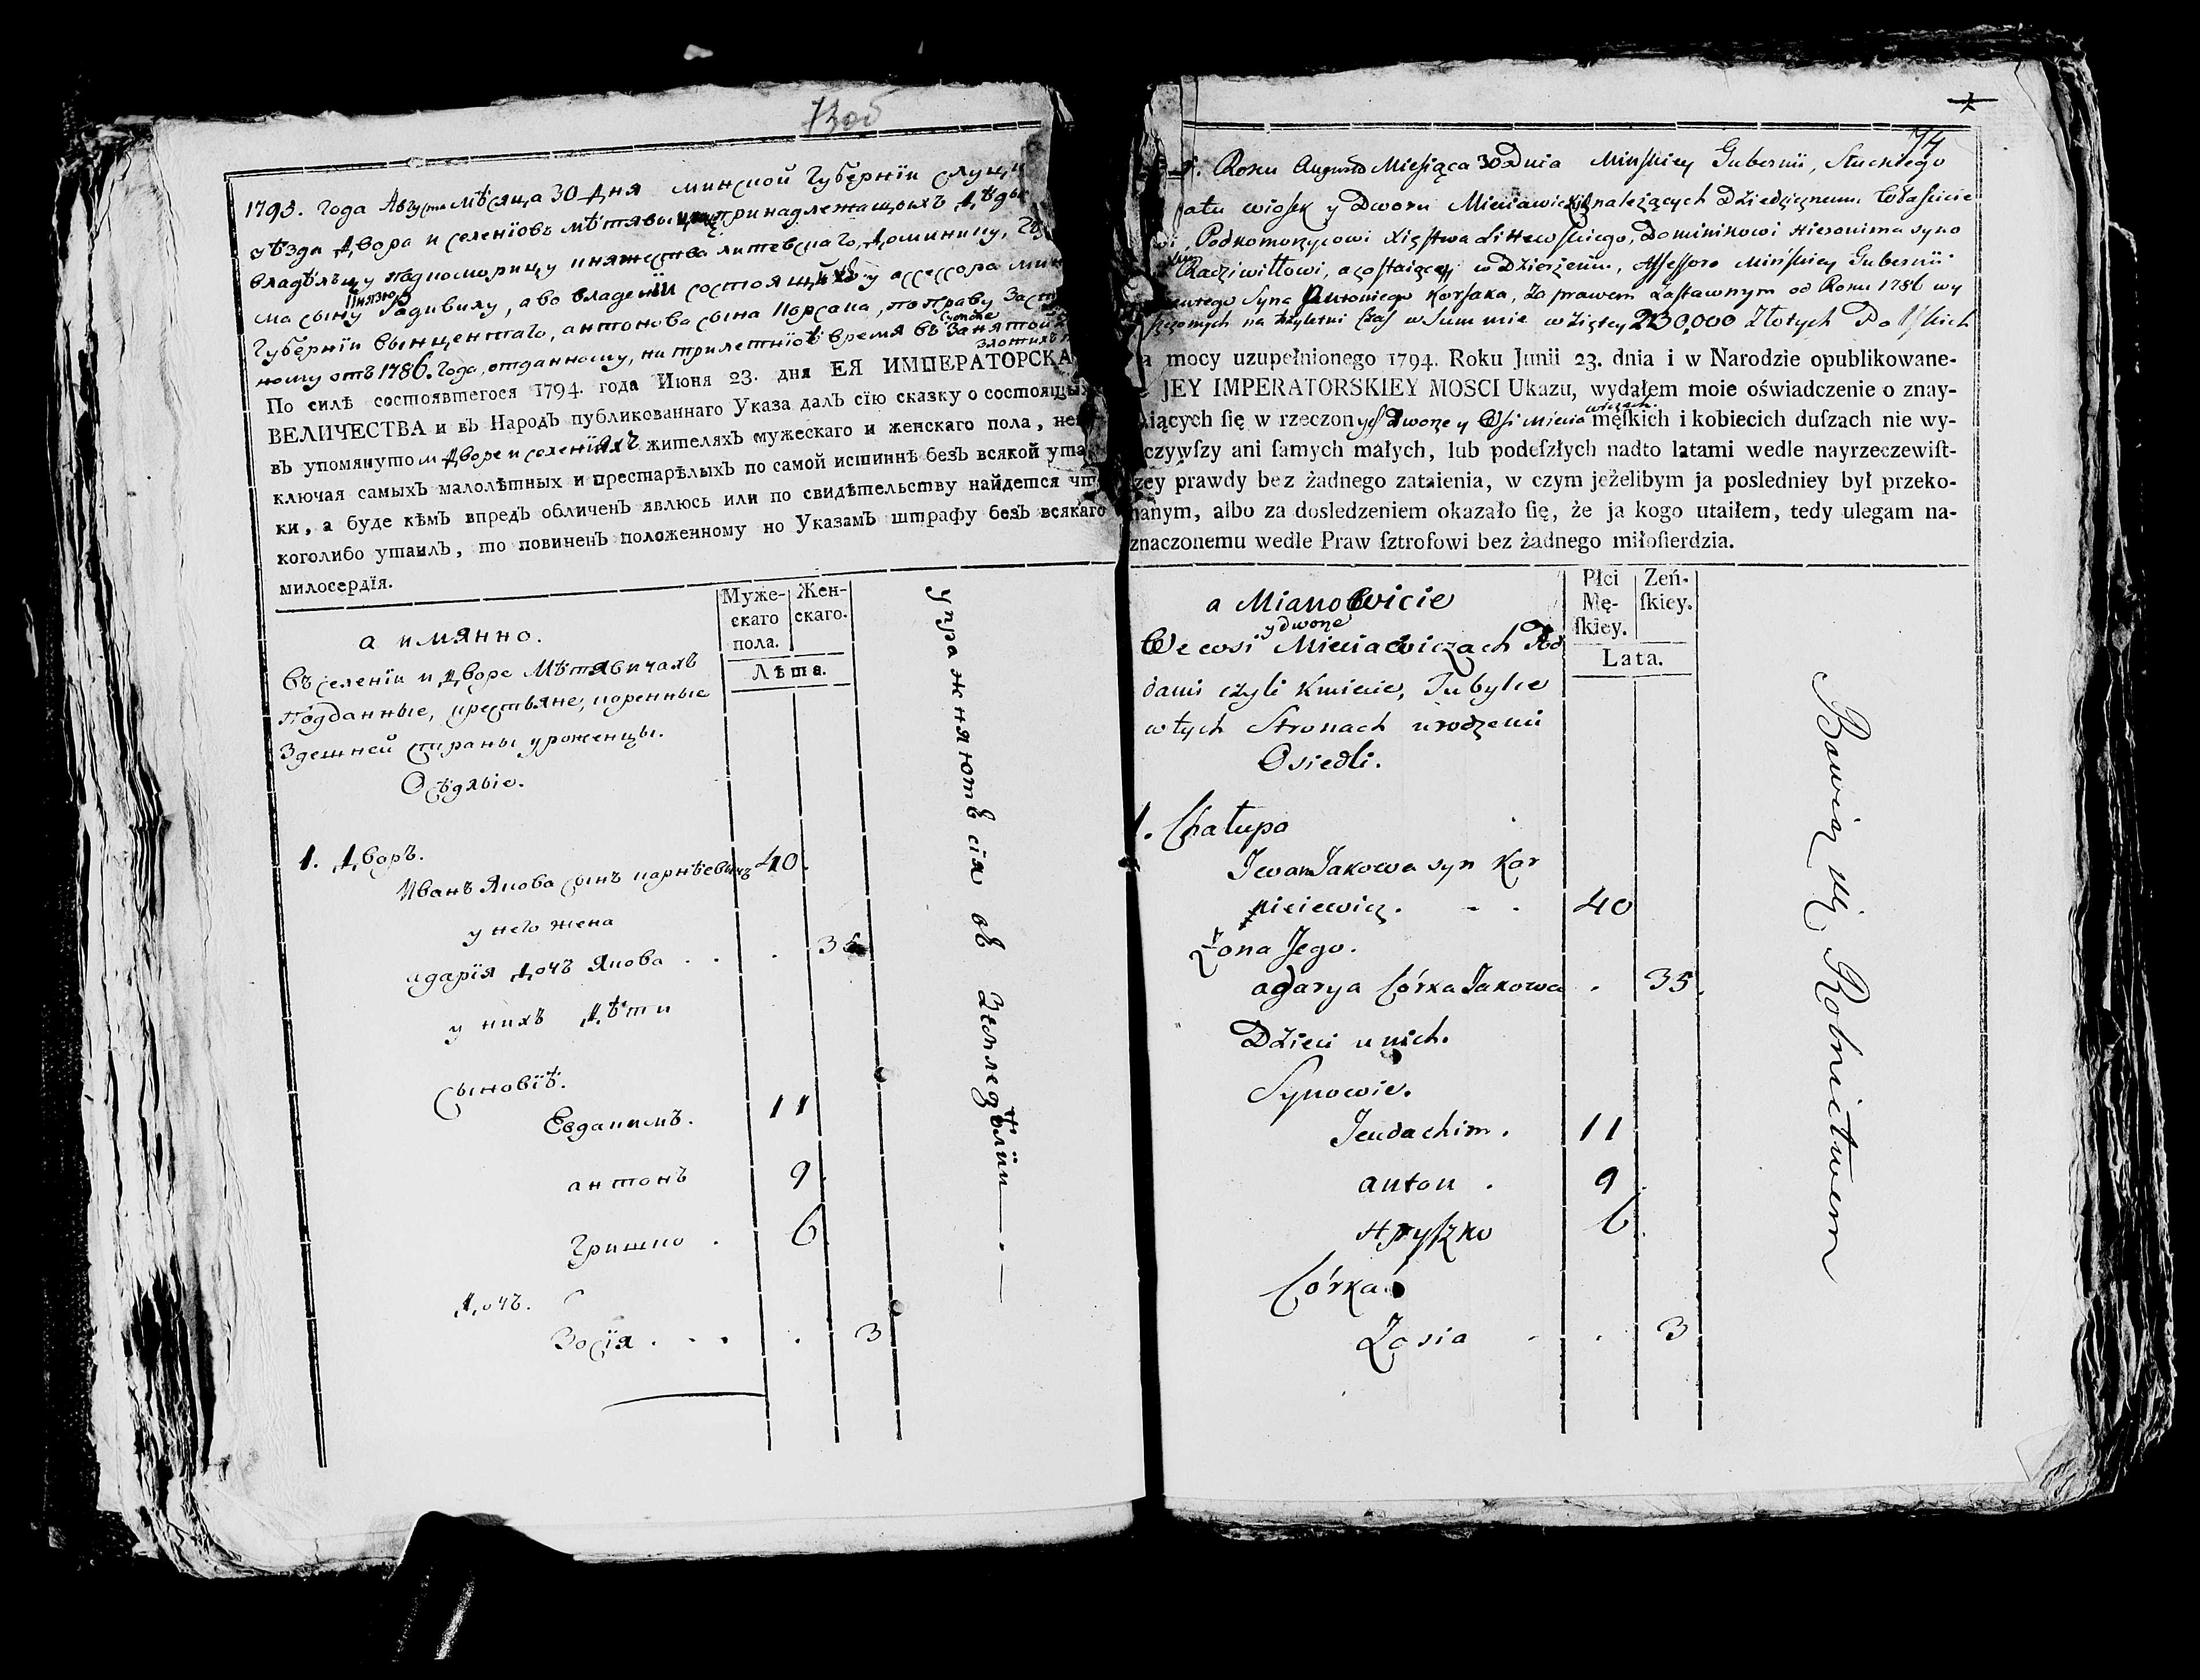 73об
1795. года Августа Мѣсяца 30 Дня минской Губернїи слуц
уѣзда двора и селенїовъ мѣтявыцкихъ принадлежащихъ дѣди
владѣльцу подкоморицу княжества литевскаго, доминику,
князю
ма сыну Радивилу, а во владенїи состоящихъ у ассессора мин
Губернїи винцентаго, антонова сына корсака, по праву заст
сумме
ному отъ 1786. года, отданному, на трилетнїое время въ занятой
По силѣ состоявшегося 1794. года Июня 23. дня ЕЯ ИМПЕРАТОРСКА
ВЕЛИЧЕСТВА и въ Народъ публикованнаго Указа далъ сїю сказку о состоящихъ
въ упомянутом дворе и селенїяхъ жителяхъ мужескаго и женскаго пола, не
ключая самыхъ малолѣтныхъ и престарѣлыхъ по самой истиннѣ безъ всякой ута
ки, а буде кѣмъ впредъ обличенъ явлюсь или по свидѣтельству найдется чт
коголибо утаилъ, то повиненъ положенному по Указамъ штрафу безъ всякаго
милосердїя.
Муже-
скаго
пола.
Жен-
скаго.
Лѣта.
а имянно.
въ селенїи и дворе Мѣтявичахъ
подданные, крестьяне, коренные
Здешней страны уроженцы.
Осѣдлые.
1. дворъ.
Иванъ Якова сынъ карнѣевичъ 40.
у него жена
агарїя дочъ Якова . . . 35
у нихъ дѣти
сыновїѣ.
Евдакимъ. 11
антонъ 9
Гришко . 6
дочъ.
Зосїя . . . . 3
упражняютъсїя въ Земледѣлїи
74
Roku Augusta Miesiąca 30 Dnia Minskiey Gubernii, Słuckiego
atu wiosek y Dworu Mieciawickich należących Dziedzicznemu Własicie
Podkomorzycowi Xięstwa Littewskiego, Dominikowi Hieronima syno
Radziwiłłowi, a zostaiącey w Dzierżeniu, Assessora Mińskiey Gubernii
centego Syna Antoniego Korsaka, za prawem zastawnym od Roku 1786 wy
na trzyletni czas w Summie wziętey 230,000 Złotych Polskich
a mocy uzupełnionego 1794. Roku Junii 23. dnia i w Narodzie opublikowane-
JEY IMPERATORSKIEY MOSCI Ukazu, wydałem moie oświadczenie o znay-
wiczach
iących ſię w rzeczonych Dworze y Wsi Miecia męſkich i kobiecich duſzach nie wy-
czywſzy ani ſamych małych, lub podeſzłych nadto latami wedle nayrzeczewiſt-
zey prawdy bez żadnego zataienia, w czym jeżelibym ja posledniey był przeko-
nanym, albo za dosledzeniem okazało ſię, że ja kogo utaiłem, tedy ulegam na-
znaczonemu wedle Praw ſztrofowi bez żadnego miłoſierdzia.
Płci
Mę-
ſkiey.
Zeń-
ſkiey.
Lata.
a Mianowicie
y dworze
We wsi Mieciawiczach Pod
dani czyli Kmiecie, Tubylce
w tych Stronach urodzeni
Osiedli.
1. Chałupa
Iwan Jakowa syn Kar
nieiewicz. - . 40
Żona Jego.
agarya Córka Jakowa . 35.
Dzieci u nich.
Synowie.
Jeudachim. 11
anton . 9
Hryszko 6
Córka
Zosia . . 3
Bawią się Rolnictwem